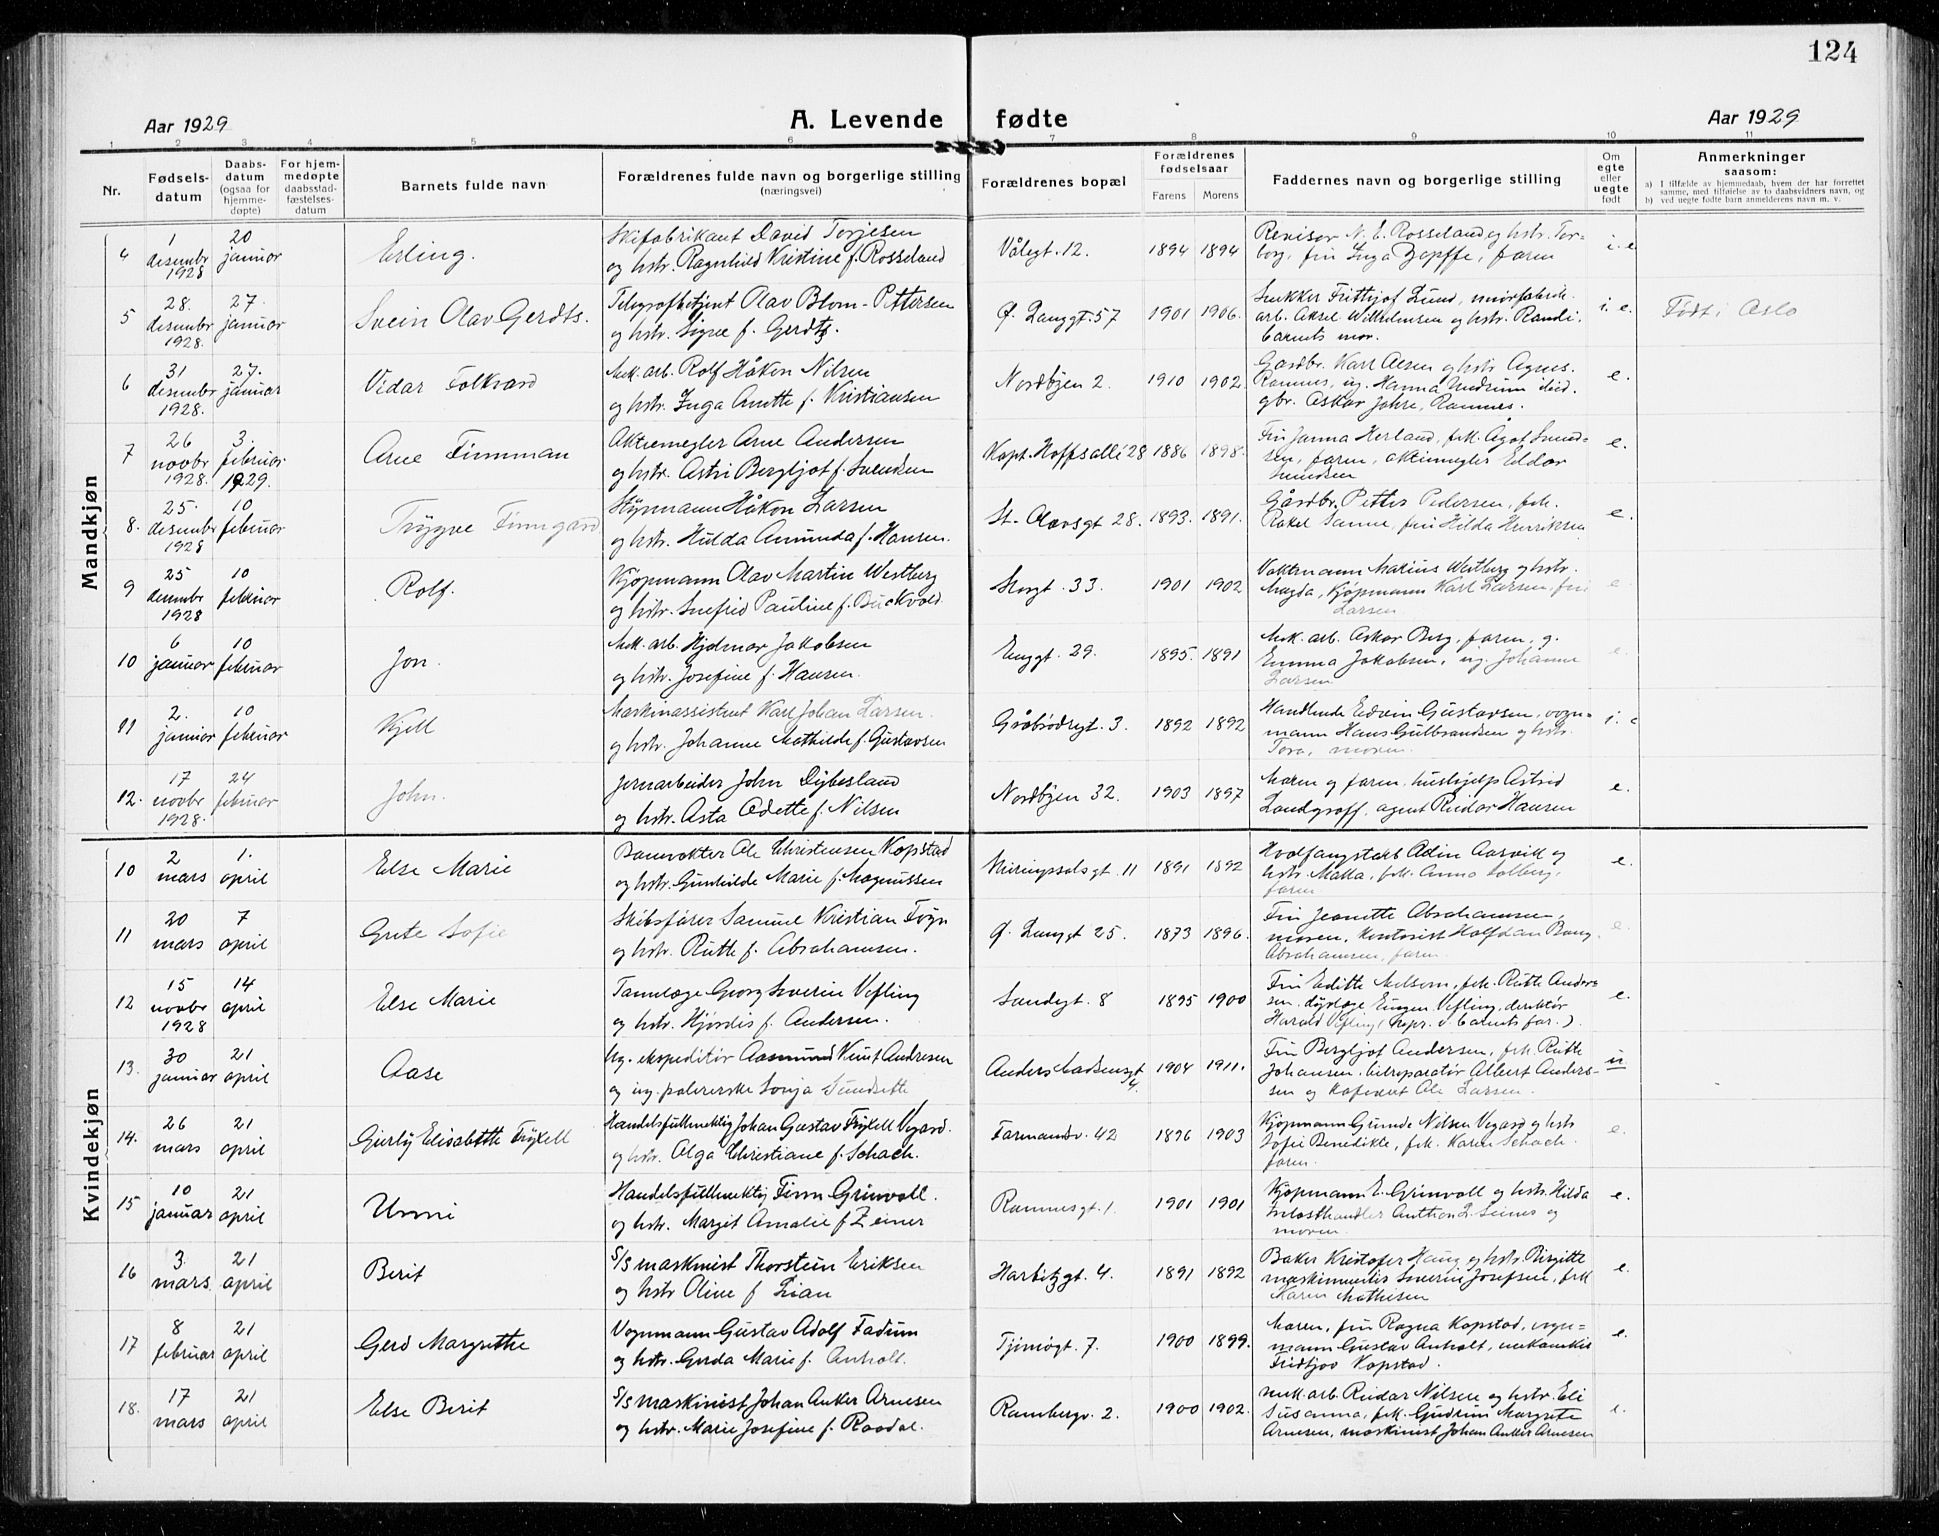 124
Aar 1929
A. Levende fødte
Aar 1929
1 2 3 4 5 6 7 8 9 10 11
Nr.
Fødsels-
datum
Daabs-
datum
(ogsaa for
hjemme-
døpte)
For hjem-
medøpte
daabsstad-
fæstelses-
datum
Barnets fulde navn
Forældrenes fulde navn og borgerlige stilling
(næringsvei)
Forældrenes bopæl
Forældrenes
fødselsaar
Farens Morens
Faddernes navn og borgerlige stilling
Om
egte
eller
uegte
født
Anmerkninger
saasom:
a) I tilfælde av hjemmedaab, hvem der har forrettet
samme, med tilføielse av to daabsvidners navn, og
b) ved uegte fødte barn anmelderens navn m. v.
Mandkjøn
4 1 desembr 1928 20 januar Erling.
Skifabrikant David Torjesen
og hstr. Ragnhild Kristine f. Rosseland
Vålegt. 12. 1894 1894
Revisor N. E. Rosseland og hstr. Tor-
borg, frk Inga Zopffe, faren
i. e.
5 28. desembr 1928. 27. januar Svein Olav Gerdts.
Telegrafbetjent Olav Blom-Pettersen
og hstr. Signe f. Gerdts
Ø. Langgt. 57 1901 1906.
Snekker Frithjof Lund,
arb. Aksel Wilhelmsen og hstr. Randi,
barnets mor.
i. e. Født i Oslo
6 31 desembr 1928. 27. januar Vidar Folkvard
Mek. arb. Rolf Håkon Nilsen
og hstr. Inga Anette f. Kristiansen
Nordbyen 2. 1910 1902.
Gardbr. Karl Olsen og hstr Agnes.
Ramnes, ug. Hanna Undrum ibid.
gbr. Oskar Jahre, Ramnes.
e.
7 26 novbr 1928. 3. februar 1929. Arne Finnman
Aktiemegler Arne Andersen
og hstr. Astri Bergljot f. Svendsen
Kapt. Hoffsallé 28 1886 1898.
Fru Janna Herland, frk. Ågot Svend-
sen, faren, aktiemegler Eldar
Svendsen
e.
8. 25. desembr 1928 10 februar Trygve Finngard
Styrmann Håkon Larsen
og hstr. Hulda Amunda f. Hansen.
St. Olavsgt 28. 1893. 1891.
Gårdbr. Petter Pedersen, frk.
Rakel Sanne, fru Hilda Henriksen
e.
9 25 desembr 1928 10 februar Rolf.
Kjøpmann Olav Martin Westberg
og hstr. Snefrid Pauline f. Buckvold
Storgt. 33. 1901 1902
Vaktmann Marius Westberg og hstr.
Magda, Kjøpmann Karl Larsen, fru
Larsen
e.
10 6 januar 10 februar Jon.
Mek. arb. Hjalmar Jakobsen
og hstr. Josefine f. Hansen.
Enggt. 29. 1895. 1891
Mek. arb. Oskar Berg, faren, g.
Emma Jakobsen, ug. Johanne
Larsen
e.
11 2. januar 10 februar Kjell
Maskinassistent Karl Johan Larsen.
og hstr. Johanne Mathilde f. Gustavsen
Gråbrødregt. 3. 1892 1892
Handlende Edvin Gustavsen, vogn-
mann Hans Gulbrandsen og hstr.
Tora, moren.
i. e
12. 17 novbr 1928. 24 februar John.
Jernarbeider John Dybesland
og hstr. Asta Odette f. Nilsen
Nordbyen 32. 1903 1897
Moren og faren, hushjelp Astrid
Landgraff, agent Reidar Hansen
e.
Kvindekjøn
10 2 mars 1. april Else Marie
Banevokter Ole Christensen Kopstad
og hstr. Gunhilde Marie f. Magnussen
11 1891 1892
Hvalfangstarb Odin Aasvik og
hstr. Malla, frk. Anna Solberg,
faren
e.
11 20 mars 7 april Grete Sofie
Skibsfører Samuel Kristian Føyn
og hstr. Ruth f. Abrahamsen.
Ø. Langgt 25. 1873 1896.
Fru Jeanette Abrahamsen,
moren, kontorist Halfdan Bang
Abrahamsen, faren
e.
12 15 novbr 1928 14 april Else Marie
Tannlæge Georg Severin Vefling
og hstr. Hjørdis f. Andersen.
Sandegt. 8 1895 1900
Fru Edith Melsom, frk. Ruth Ander-
sen. dyrlæge Eugen Vefling, direktør
Harald Vefling (repr. v. barnets far.).
e.
13. 30 januar 21 april Aase
Ug. ekspeditør Aasmund Knut Andresen
og ug. polererske Sonja Sundseth
Anders Madsensgt 4. 1904 1911.
Fru Bergljot Andersen, frk. Ruth
Johansen, bilreparatør Albert Anders-
sen og Ole Larsen.
u
14. 26 mars 21 april Gerly Elisabeth Fryxell
Handelsfullmektig Johan Gustav Fryxell Vegard.
og hstr. Olga Christiane f. Schach.
Farmandsv. 42 1896 1903
Kjøpmann Gunde Nilsen Vegard og hstr
Sofie Benedikte, frk. Karen Schach.
faren.
e.
15 10 januar 21 april Unni
Handelsfullmektig Finn Grinvoll.
og hstr. Margit Amalie f. Zeiner
Ramnesgt. 1. 1901 1901
Kjøpmann E. Grinvoll og hstr. Hilda
trelasthandler Anthon L. Seines og
moren.
e.
16 3. mars 21 april Berit
S/S maskinist Thorstein Eriksen
og hstr Oline f Lian
Harbitzgt. 4. 1891 1892
Baker Kristofer Haug og hstr. Birgitte
Severin Josefsen, frk
Karen Mathisen
e.
17 8 februar 21 april Gerd Margrethe
Vognmann Gustav Adolf Fadum
og hstr. Gerda Marie f. Anholt.
Tjømøgt. 7. 1900 1899.
Moren, fru Ragna Kopstad, vogn-
mann Gustav Anholt, mekaniker
Fridtjov Kopstad.
e.
18. 17 mars 21 april Else Berit
S/S maskinist Johan Anker Arnesen
og hstr. Marie Josefine f. Raadal.
Rambergv. 2. 1900 1902.
Mek. arb. Reidar Nilsen og hstr. Eli
Susanna, frk. Gudrun Margrete
Arnesen, maskinist Johan Anker Arnesen
e.